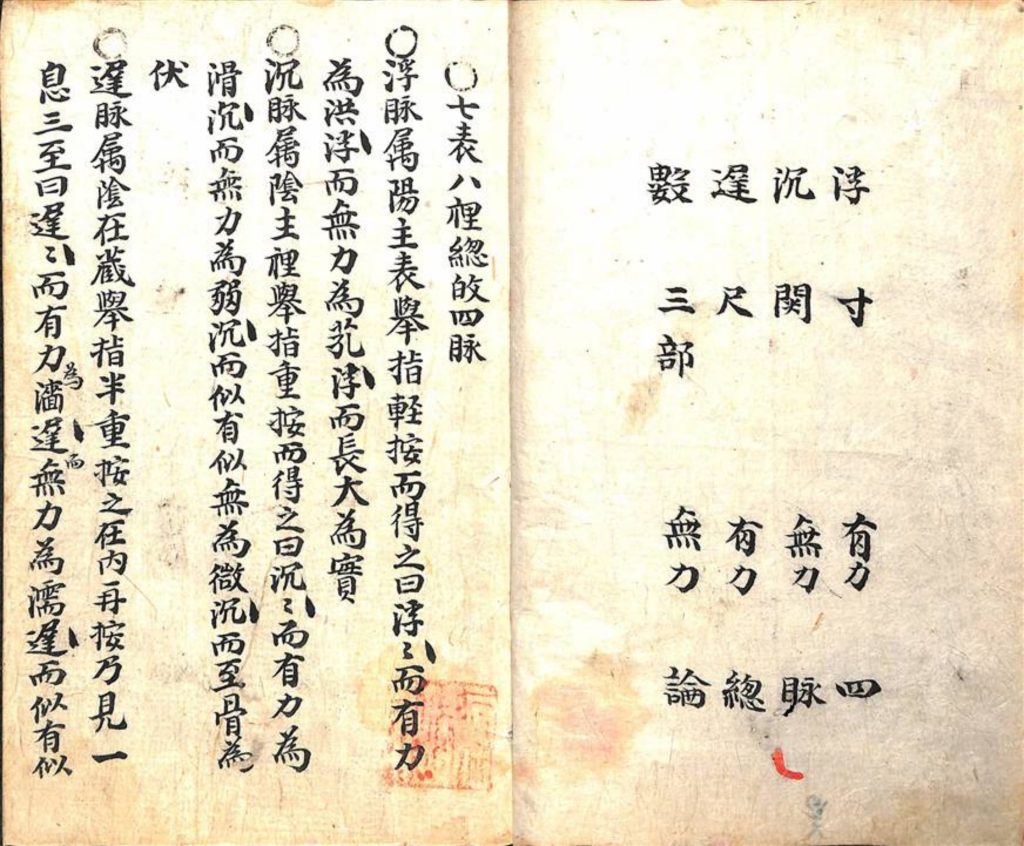 浮　寸　有力　四
沉　関　無力　脉
遅　尺　有力　總
數　三部　無力　論
○七表八裡總的四脉
○浮脉属陽主表舉指軽按而得之曰浮〻而有力
為洪浮而無力為芤浮而長大為實
○沉脉属陰主裡舉指重按而得之曰沉〻而有力為
滑沉而無力為弱沉而似有似無為微沉而至骨為
伏
○遅脉属陰在蔵舉指半重按之在内再按乃見一
息三至曰遅〻而有力為濇遅而無力為濡遅而似有似